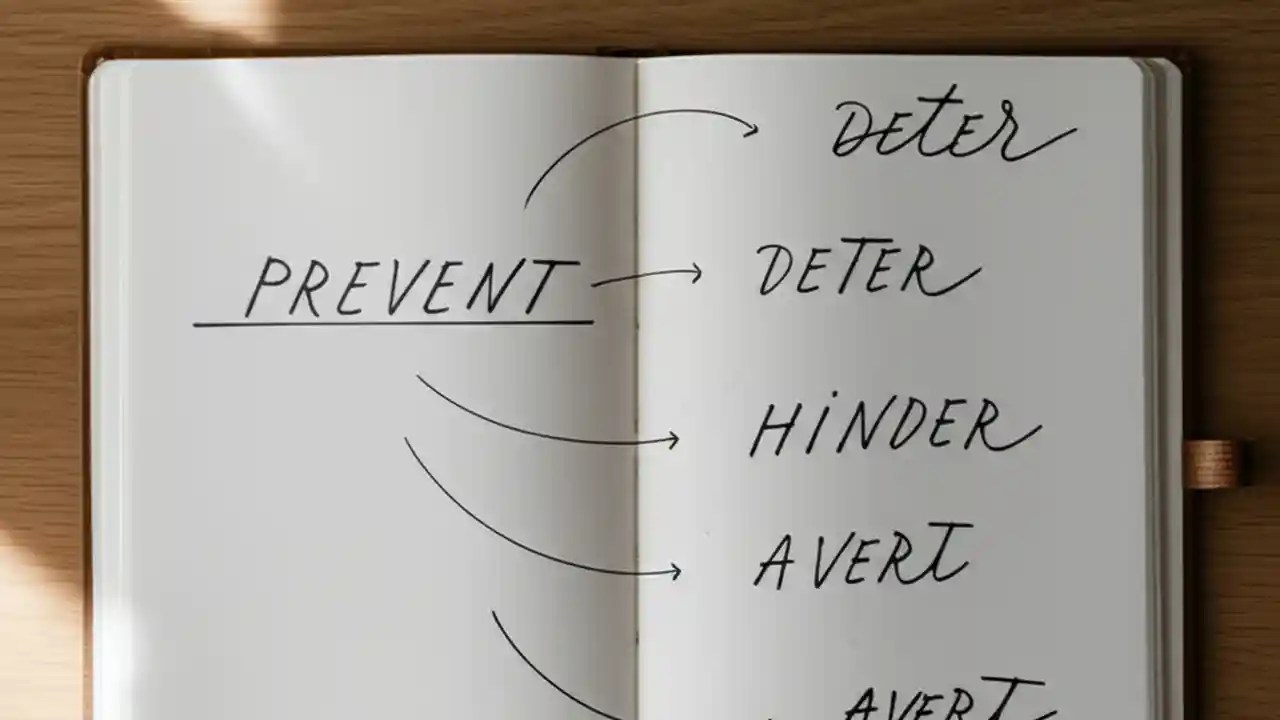 PREVENT
Deter
DETER
HiNDER
AVERT
AVERT